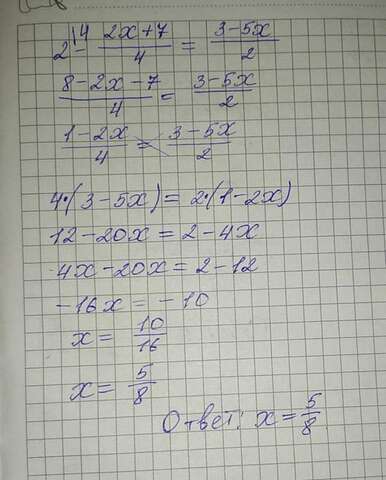 2 \4 - (2x+7)/4 = (3-5x)/2
(8-2x-7)/4 = (3-5x)/2
(1-2x)/4 = (3-5x)/2
4·(3-5x)=2·(1-2x)
12-20x=2-4x
4x-20x=2-12
-16x=-10
x= 10/16
x= 5/8
Ответ: x= 5/8